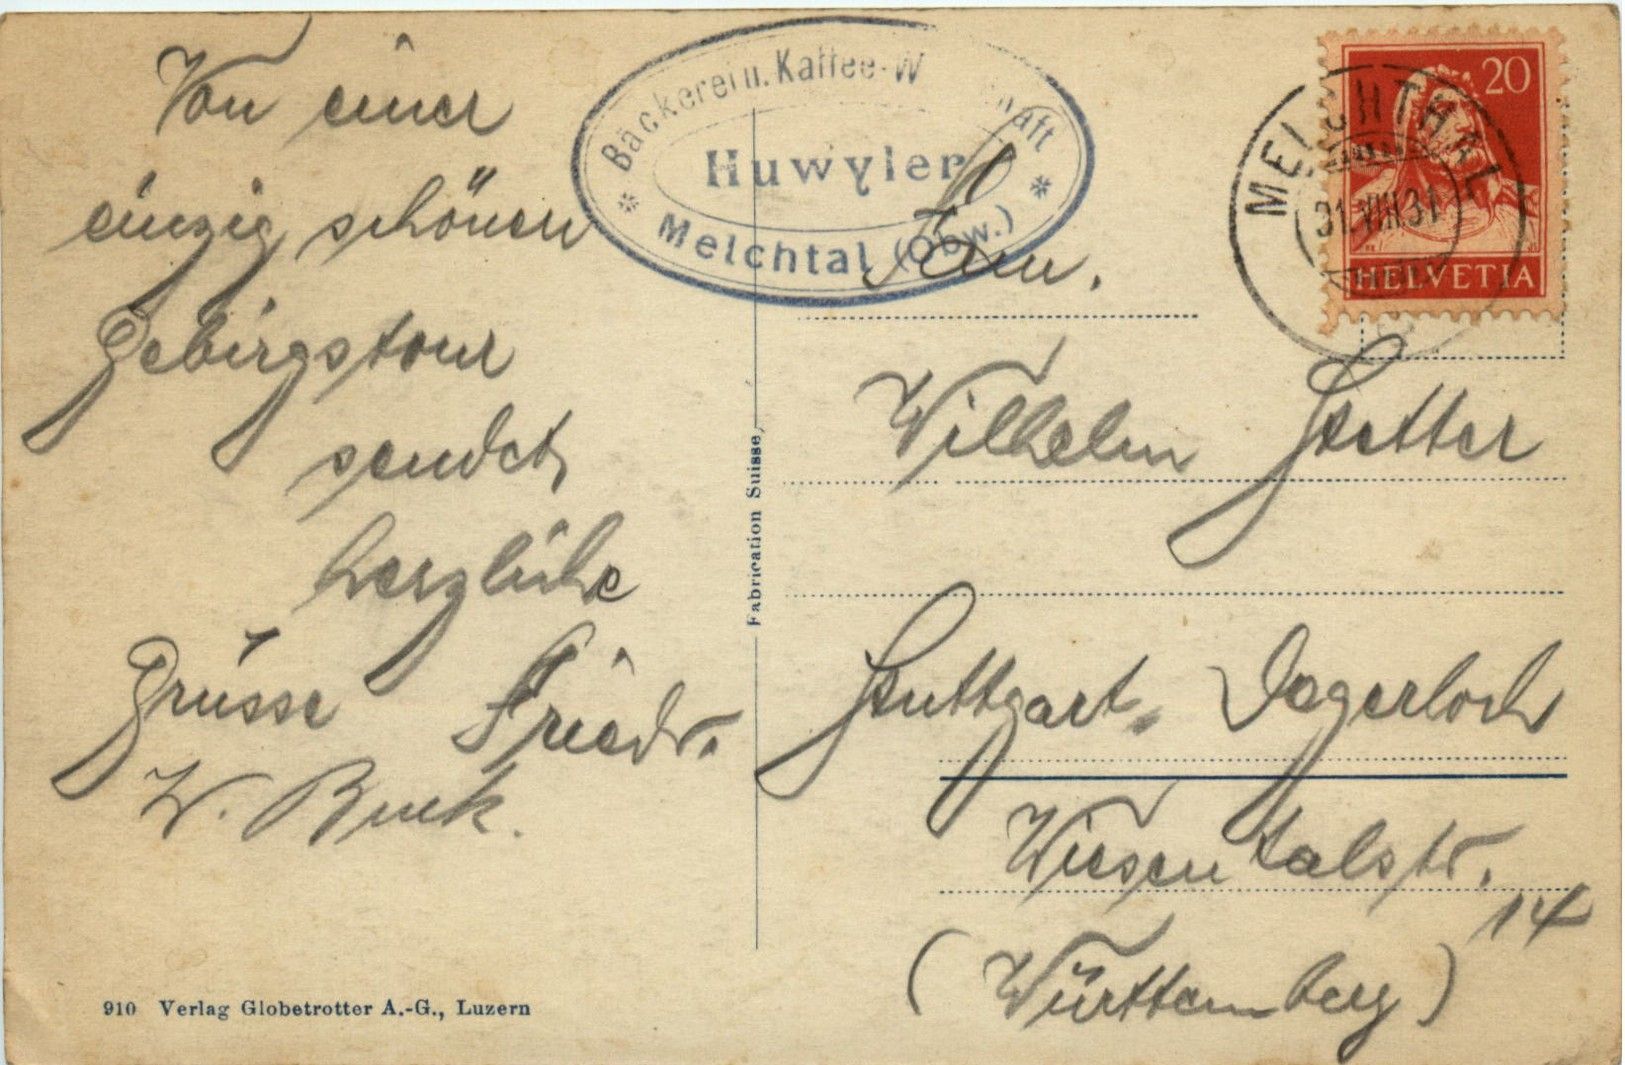 Von einer
einzig schönen
Gebirgstour
sendet
herzliche
Grüsse Friedr.
W. Buck.
910 Verlag Globetrotter A.-G., Luzern
Bäckerei u. Kaffee-W haft
Huwyler
Melchtal (Obw.)
Fabrication Suisse.
20
HELVETIA
MELCHTHAL
31.VIII.31
Fam.
Wilhelm Stetter
Stuttgart-Degerloch
Wiesentalstr.
14
(Württemberg)